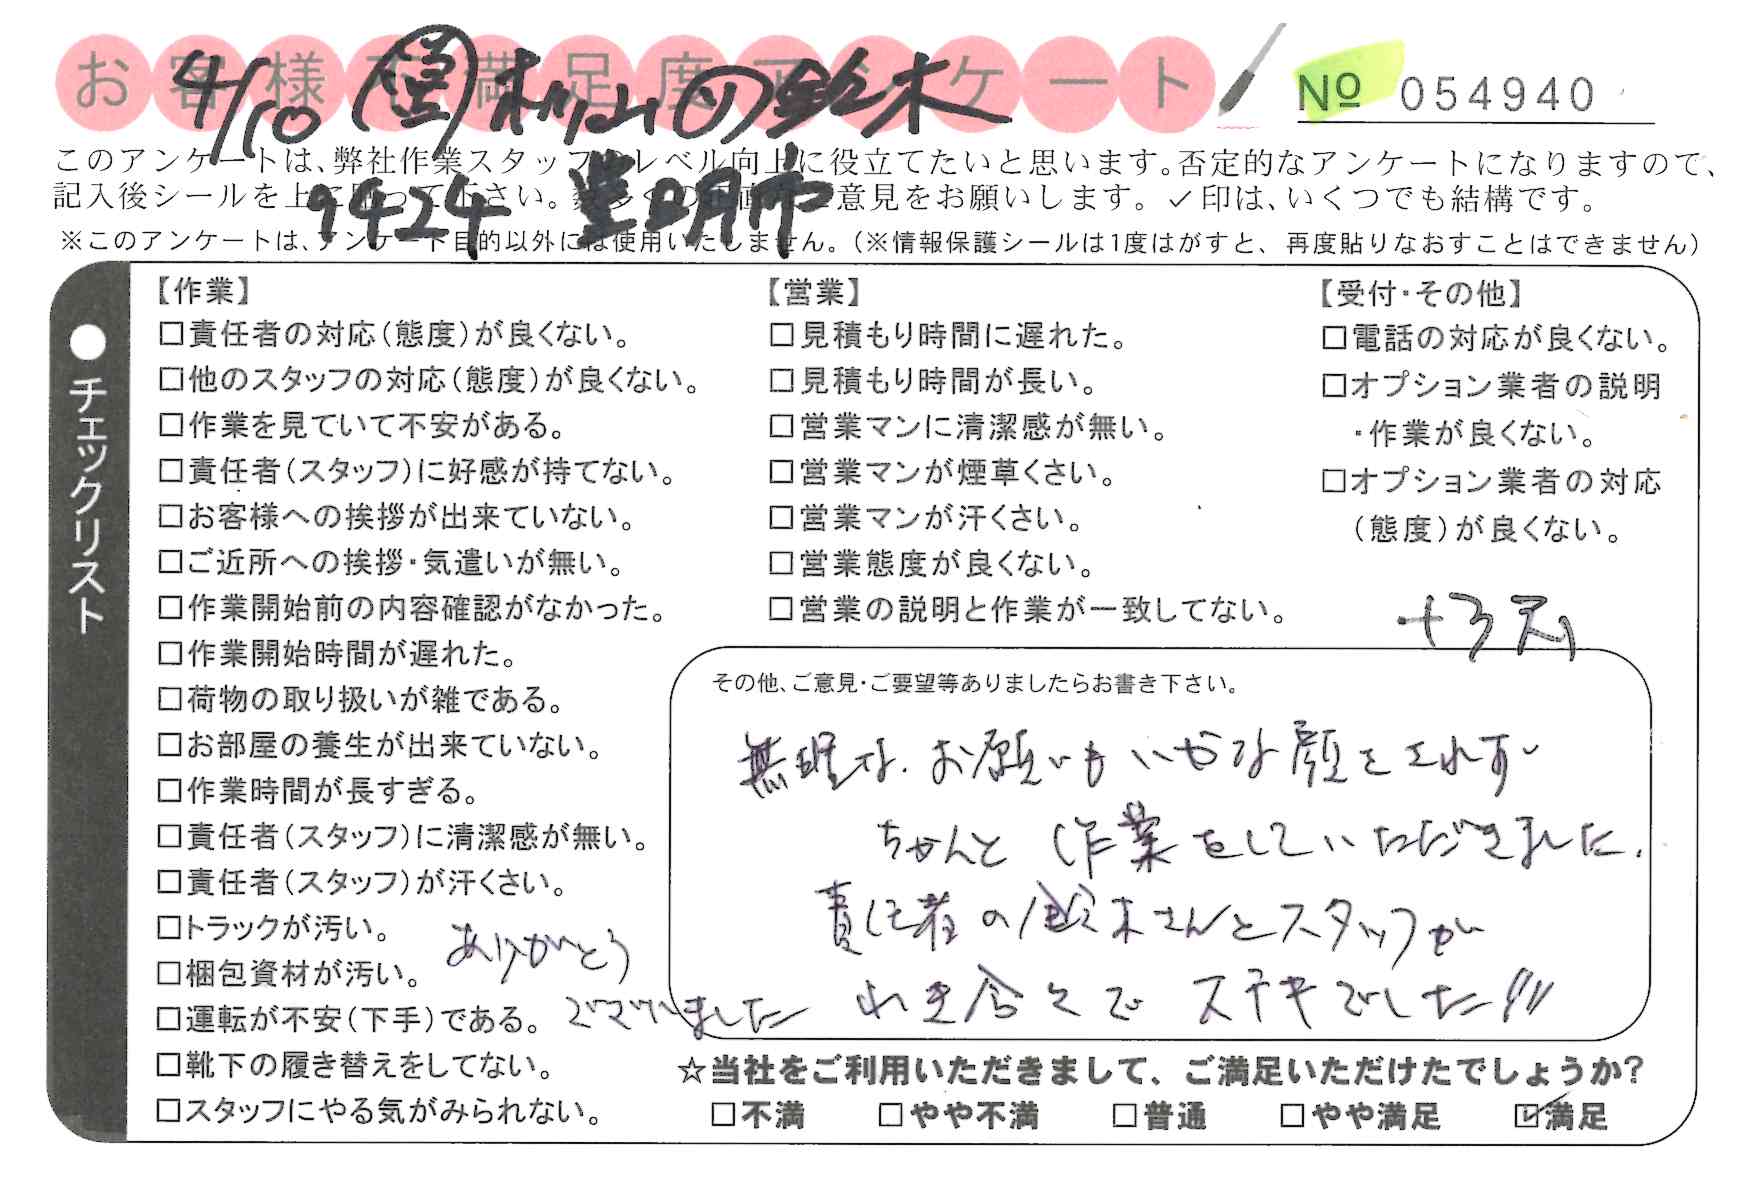 お客様不満足度アンケート
4/10 営 杉山 ツ 鈴木
№ 054940
このアンケートは、弊社作業スタッフのレベル向上に役立てたいと思います。否定的なアンケートになりますので、
記入後シールを上に貼って下さい。数多くの正直なご意見をお願いします。✓印は、いくつでも結構です。
9424 豊明市
※このアンケートは、アンケート目的以外には使用いたしません。(※情報保護シールは1度はがすと、再度貼りなおすことはできません)
●チェックリスト
【作業】
□責任者の対応(態度)が良くない。
□他のスタッフの対応(態度)が良くない。
□作業を見ていて不安がある。
□責任者(スタッフ)に好感が持てない。
□お客様への挨拶が出来ていない。
□ご近所への挨拶・気遣いが無い。
□作業開始前の内容確認がなかった。
□作業開始時間が遅れた。
□荷物の取り扱いが雑である。
□お部屋の養生が出来ていない。
□作業時間が長すぎる。
□責任者(スタッフ)に清潔感が無い。
□責任者(スタッフ)が汗くさい。
□トラックが汚い。
□梱包資材が汚い。
□運転が不安(下手)である。
□靴下の履き替えをしてない。
□スタッフにやる気がみられない。
【営業】
□見積もり時間に遅れた。
□見積もり時間が長い。
□営業マンに清潔感が無い。
□営業マンが煙草くさい。
□営業マンが汗くさい。
□営業態度が良くない。
□営業の説明と作業が一致してない。
【受付・その他】
□電話の対応が良くない。
□オプション業者の説明
・作業が良くない。
□オプション業者の対応
(態度)が良くない。
その他、ご意見・ご要望等ありましたらお書き下さい。
無理な、お願いもいやな顔をされず
ちゃんと作業をしていただきました。
責任者の鈴木さんとスタッフが
わき合々でステキでした!!!
ありがとう
ございました
☆当社をご利用いただきまして、ご満足いただけたでしょうか?
□不満 □やや不満 □普通 □やや満足 ☑満足